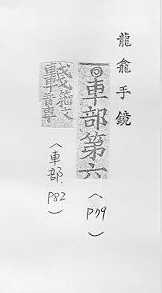 龍龕手鏡
車部第六
（P79）
音專
（車部P82）